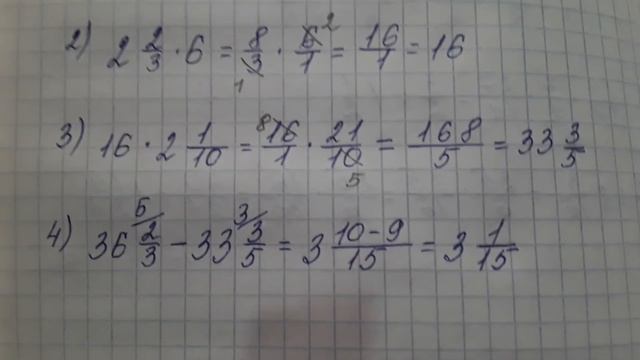 2) 2 2/3 · 6 = 8/3 · 6/1 = 16/1 = 16
3) 16 · 2 1/10 = 16/1 · 21/10 = 168/5 = 33 3/5
4) 36 2/3 - 33 3/5 = 3 10-9/15 = 3 1/15